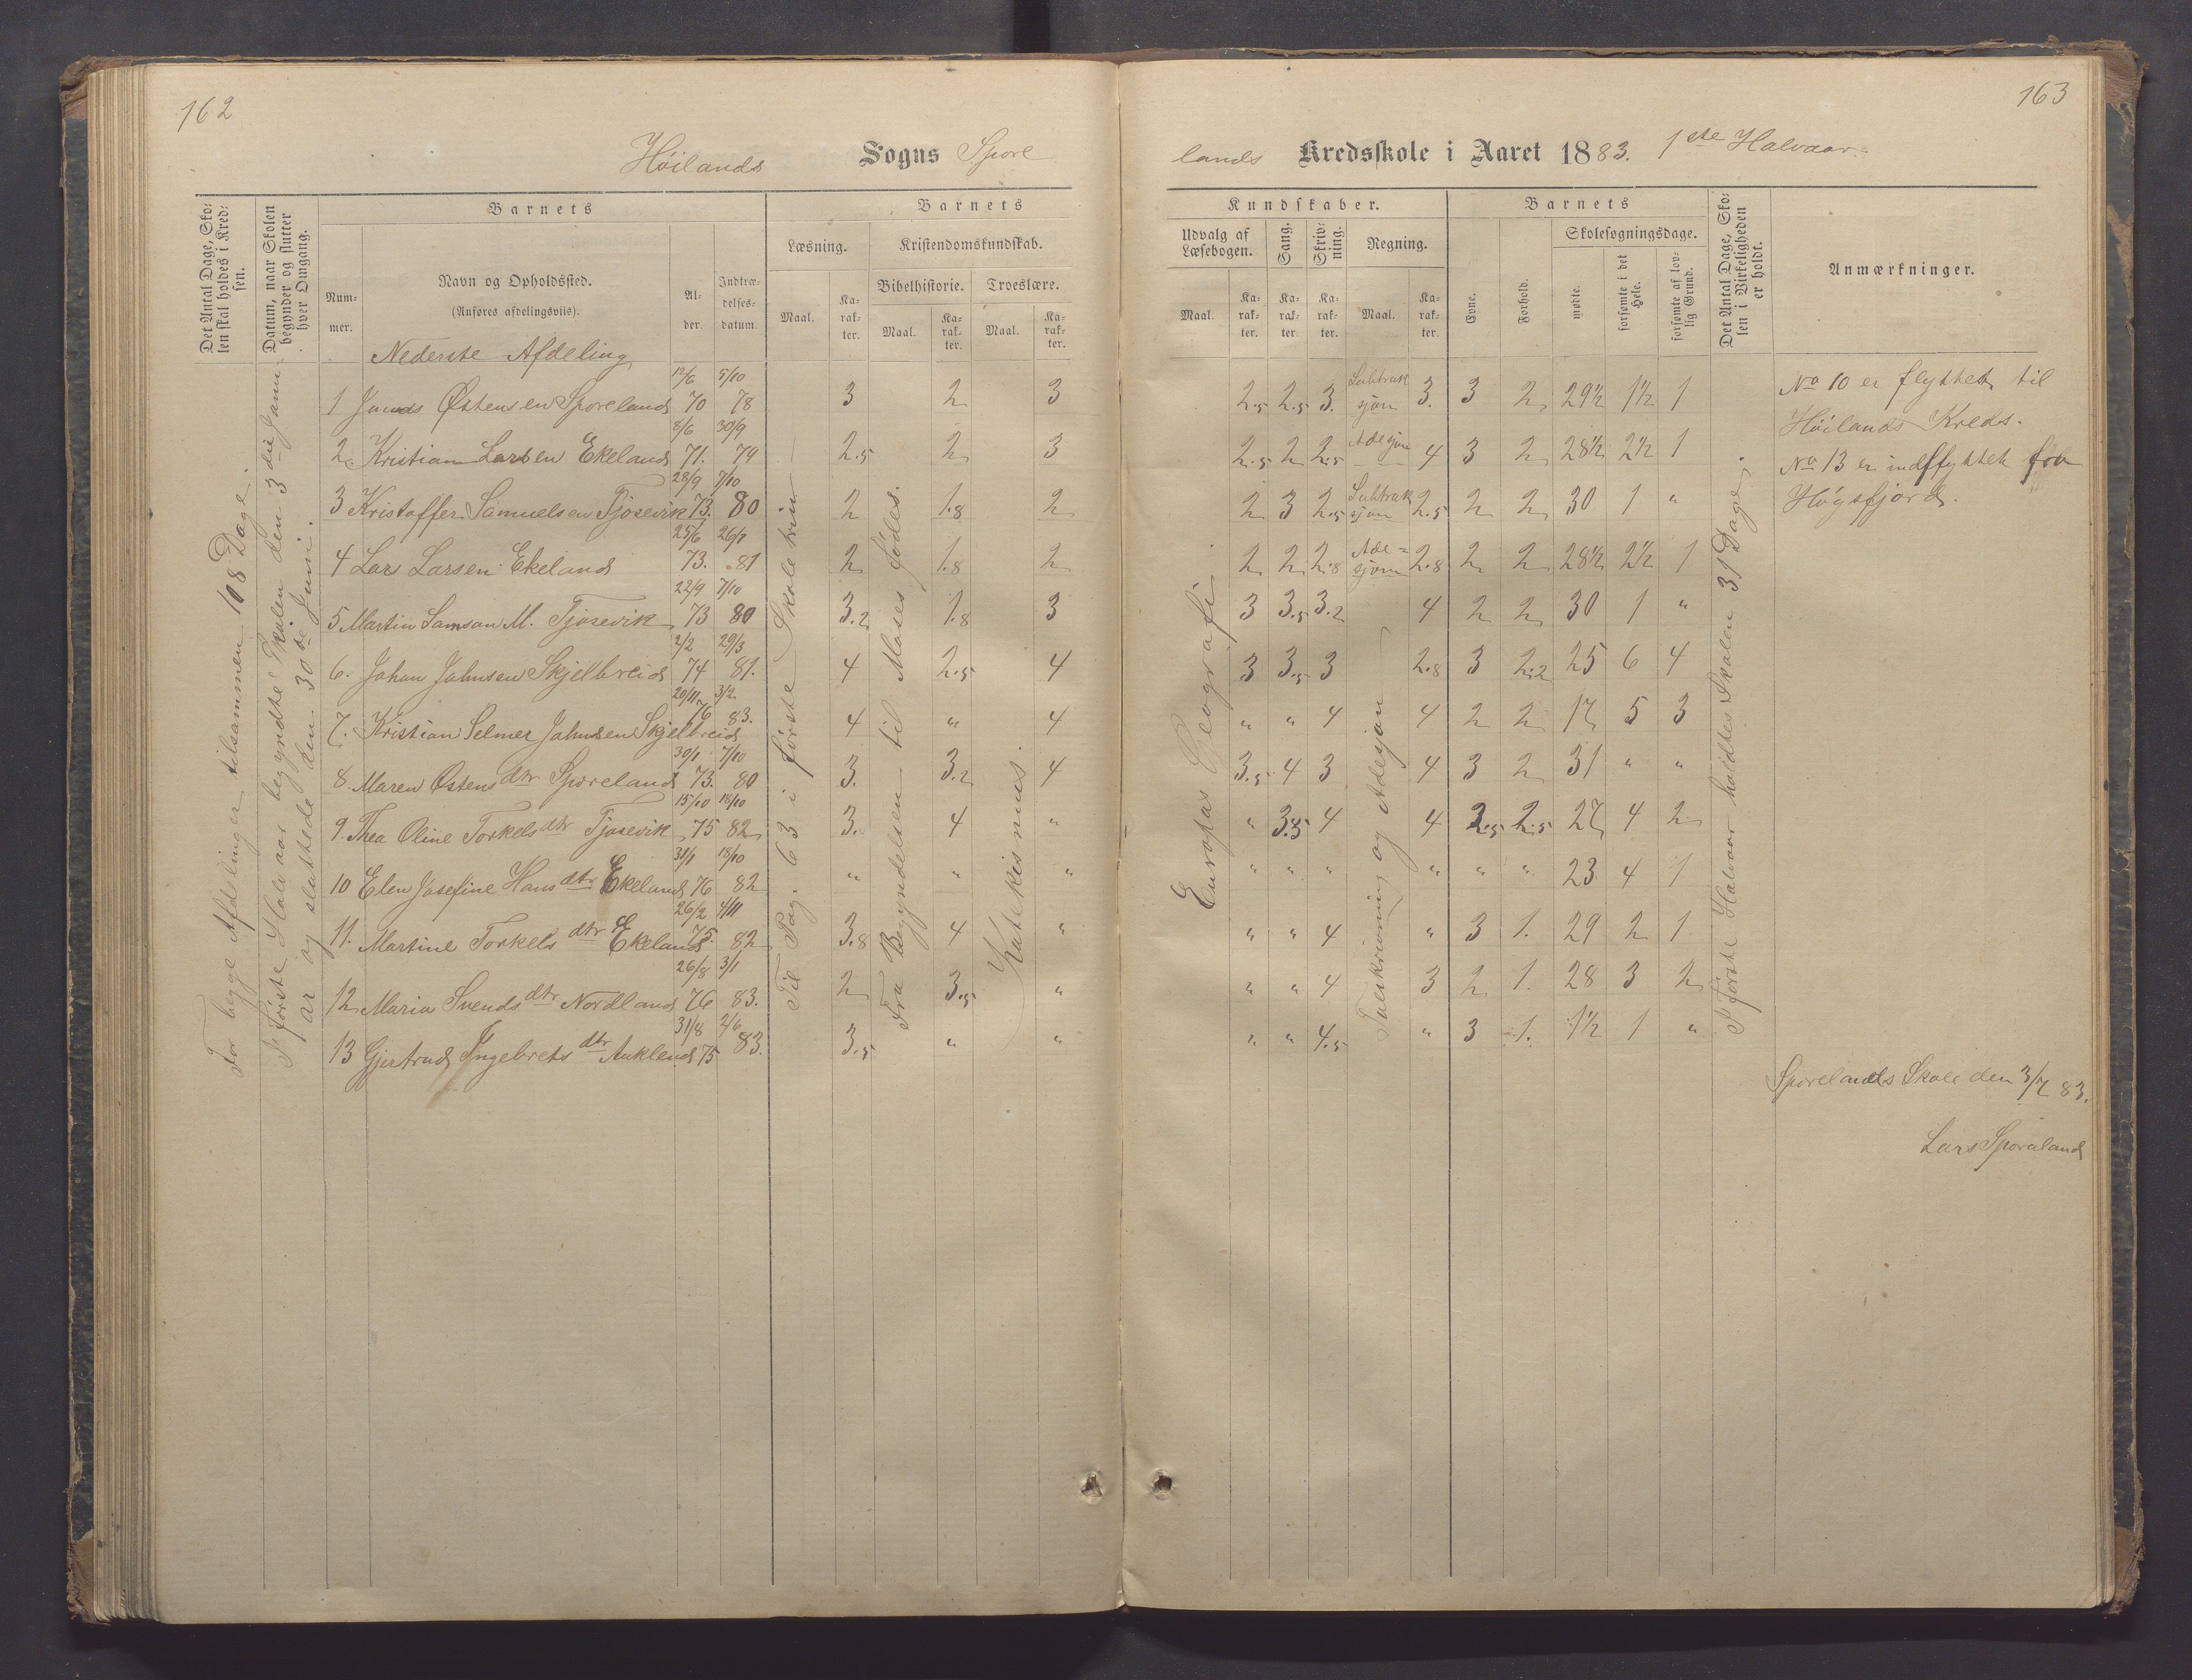 162
Höilands Sogns Spore
Det Antal Dage, Skolen skal holdes i Kredsen.
Datum, naar Skolen begynder og slutter hver Omgang.
Barnets
Nummer.
Navn og Opholdssted.
(Anføres afdelingsviis).
Alder.
Indtrædelsesdatum.
Barnets
Læsning.
Kristendomskundskab.
Bibelhistorie. Troeslære.
Maal. Karakter. Maal. Karakter. Maal. Karakter.
For begge Afdelinger tilsammen 108 Dage.
I første Halvaar begyndte Skolen den 3die Januar og sluttede den 30de Juni.
Nederste Afdeling
12/6 5/10
1 Østensen Sporeland 70 78 3 2 3
8/6 30/9
2 Kristian Larsen Ekeland 71. 79 2.5 2 3
28/9 7/10
3 Kristoffer Samuelsen Tjosevik 73. 80 2 1.8 2
25/6 26/1
4 Lars Larsen Ekeland 73. 81 2 1.8 2
22/9 7/10
5 Martin Samson M. Tjosevik 73 80 3.2 1.8 3
2/2 29/3
6. Johan Johnsen Skjelbreid 74 81. 4 2.5 4
20/11 3/2
7. Kristian Selmer Johnsen Skjelbreid 76 83. 4 " 4
30/1 7/10
8. Maren Østensdtr Sporeland 73. 80 3. 3.2 4
15/10 18/10
9. Thea Oline Torkelsdtr Tjosevik 75 82 3. 4 "
31/1 18/10
10 Elen Josefine Hansdtr Ekeland 76 82 " " "
26/2 4/11
11. Martine Torkelsdtr Ekeland 75. 82 3.8 4 "
26/8 3/1
12 Maria Svendsdtr Nordland 76 83. 2 3.5 "
31/8 2/6
13 Gjertrud Ingebretsdtr Aukland 75 83. 3.5 " "
Til Pag. 63 i første Skoletrin
Fra Begyndelsen til Moses fødes.
Katekismus.
163
lands Kredsskole i Aaret 1883. 1ste Halvaar.
Kundskaber.
Udvalg af Læsebogen.
Sang.
Skrivning.
Regning.
Maal. Karakter. Karakter Karakter. Maal. Karakter.
Barnets
Evne.
Forhold.
Skolesøgningsdage.
mødte.
forsømte i det Hele.
forsømte af lovlig Grund.
Det Antal Dage, Skolen i Virkeligheden er holdt.
Anmærkninger.
2.5 2.5 3. Subtraksjon 3. 3 2 29½ 1½ 1
2.5 2 2.5 Adesjon 4 3 2 28½ 2½ 1
2 3 2.5 Subtraksjon 2.5 2 2 30 1 "
2 2 2.8 Adesjon 2.8 2 2 28½ 2½ 1
3 3.5 3.2 4 2 2 30 1 "
3 3.5 3 2.8 3 2.2 25 6 4
" " 4 4 2 2 17 5 3
3.5 4 3 4 3 2 31 " "
" 3.5 4 4 2.5 2.5 27 4 2
" " " " " " 23 4 1
" " 4 " 3 1. 29 2 1
" " 4 3 2 1. 28 3 2
" " 4.5 " 3 1. 1½ 1 "
Europas Geografi
Talskrivning og Adesjon
I første Halvaar holdtes Skolen 31 Dage.
No 10 er flyttet til
Höilands Kreds.
No 13 er indflyttet fra
Høgsfjord.
Sporelands Skole den 3/7 83.
Lars Sporaland